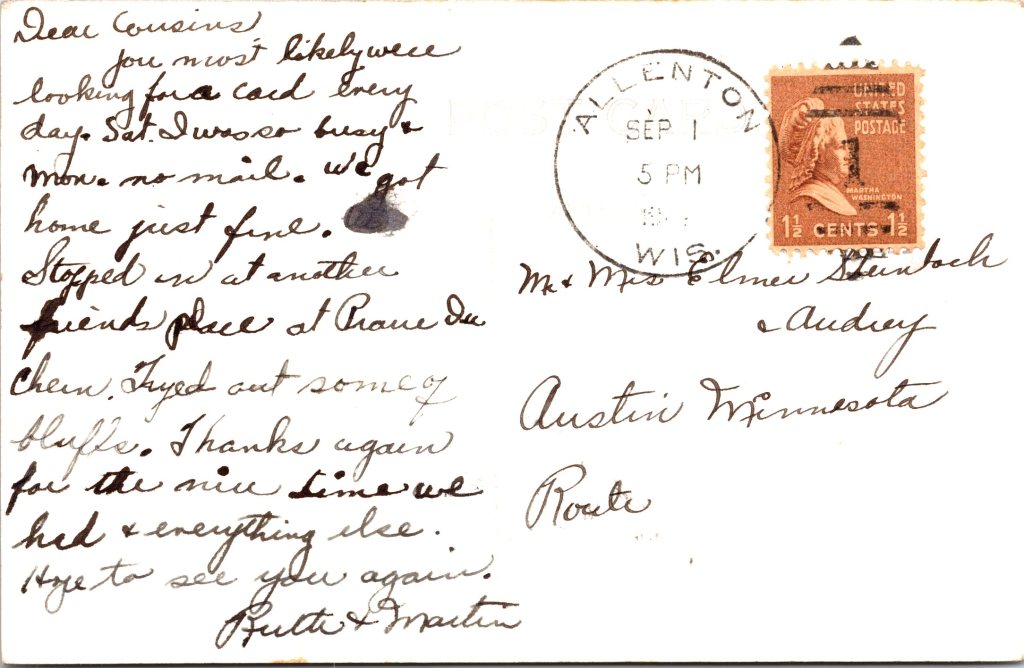 Dear Cousins,
you most likely were
looking for a card every
day. Sat. I was so busy &
Mon. no mail. We got
home just fine.
Stopped in at another
friends place at Prarie Du
Chein. Tryed out some of
bluffs. Thanks again
for the nice time we
had & everything else.
Hope to see you again.
Ruth & Martin
POST CARD
ALLENTON
SEP 1
5 PM
WIS.
UNITED
STATES
POSTAGE
MARTHA
WASHINGTON
1½ CENTS 1½
Mr & Mrs Elmer
& Audrey
Austin Minnesota
Route